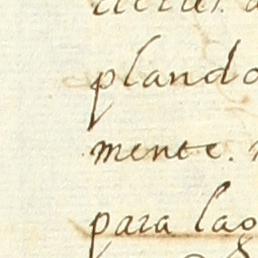 plando
mente.
para lao